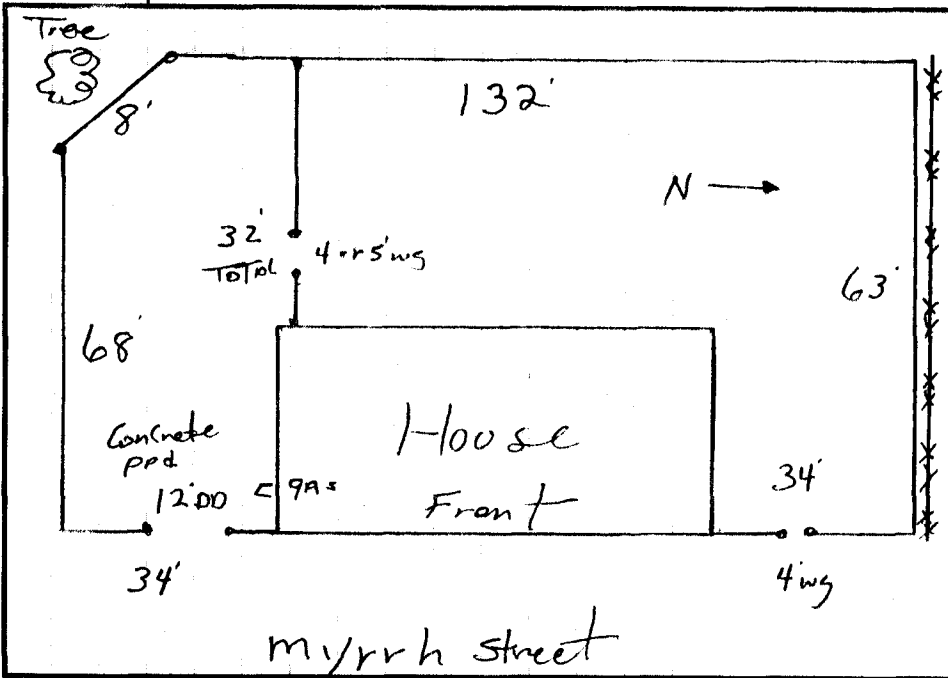 Tree
8'
132'
N
32'
TOTAL
4 or 5' wg
63'
68'
Concrete
ppd
12' DD
GAS
House
Front
34'
34'
4' wg
myrrh street